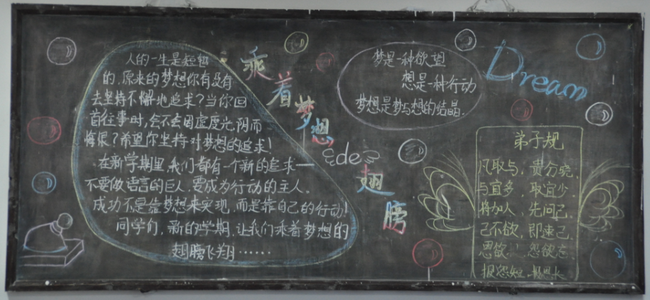 人的一生是短暂
的,原来的梦想你有没有
去坚持不懈地追求?当你回
首往事时,会不会因虚度光阴而
悔恨?希望你坚持对梦想的追求!
在新学期里,我们都有一个新的追求——
不要做语言的巨人,要成为行动的主人。
成功不是靠梦想来实现,而是靠自己的行动!
同学们,新的学期,让我们乘着梦想的
翅膀飞翔……
乘着梦想
de
翅膀
梦是一种欲望
想是一种行动
梦想是梦与想的结晶.
Dream
弟子规
凡取与,贵分晓,
与宜多,取宜少
将加人,先问己,
己不欲,即速已.
恩欲 怨欲忘
报怨短